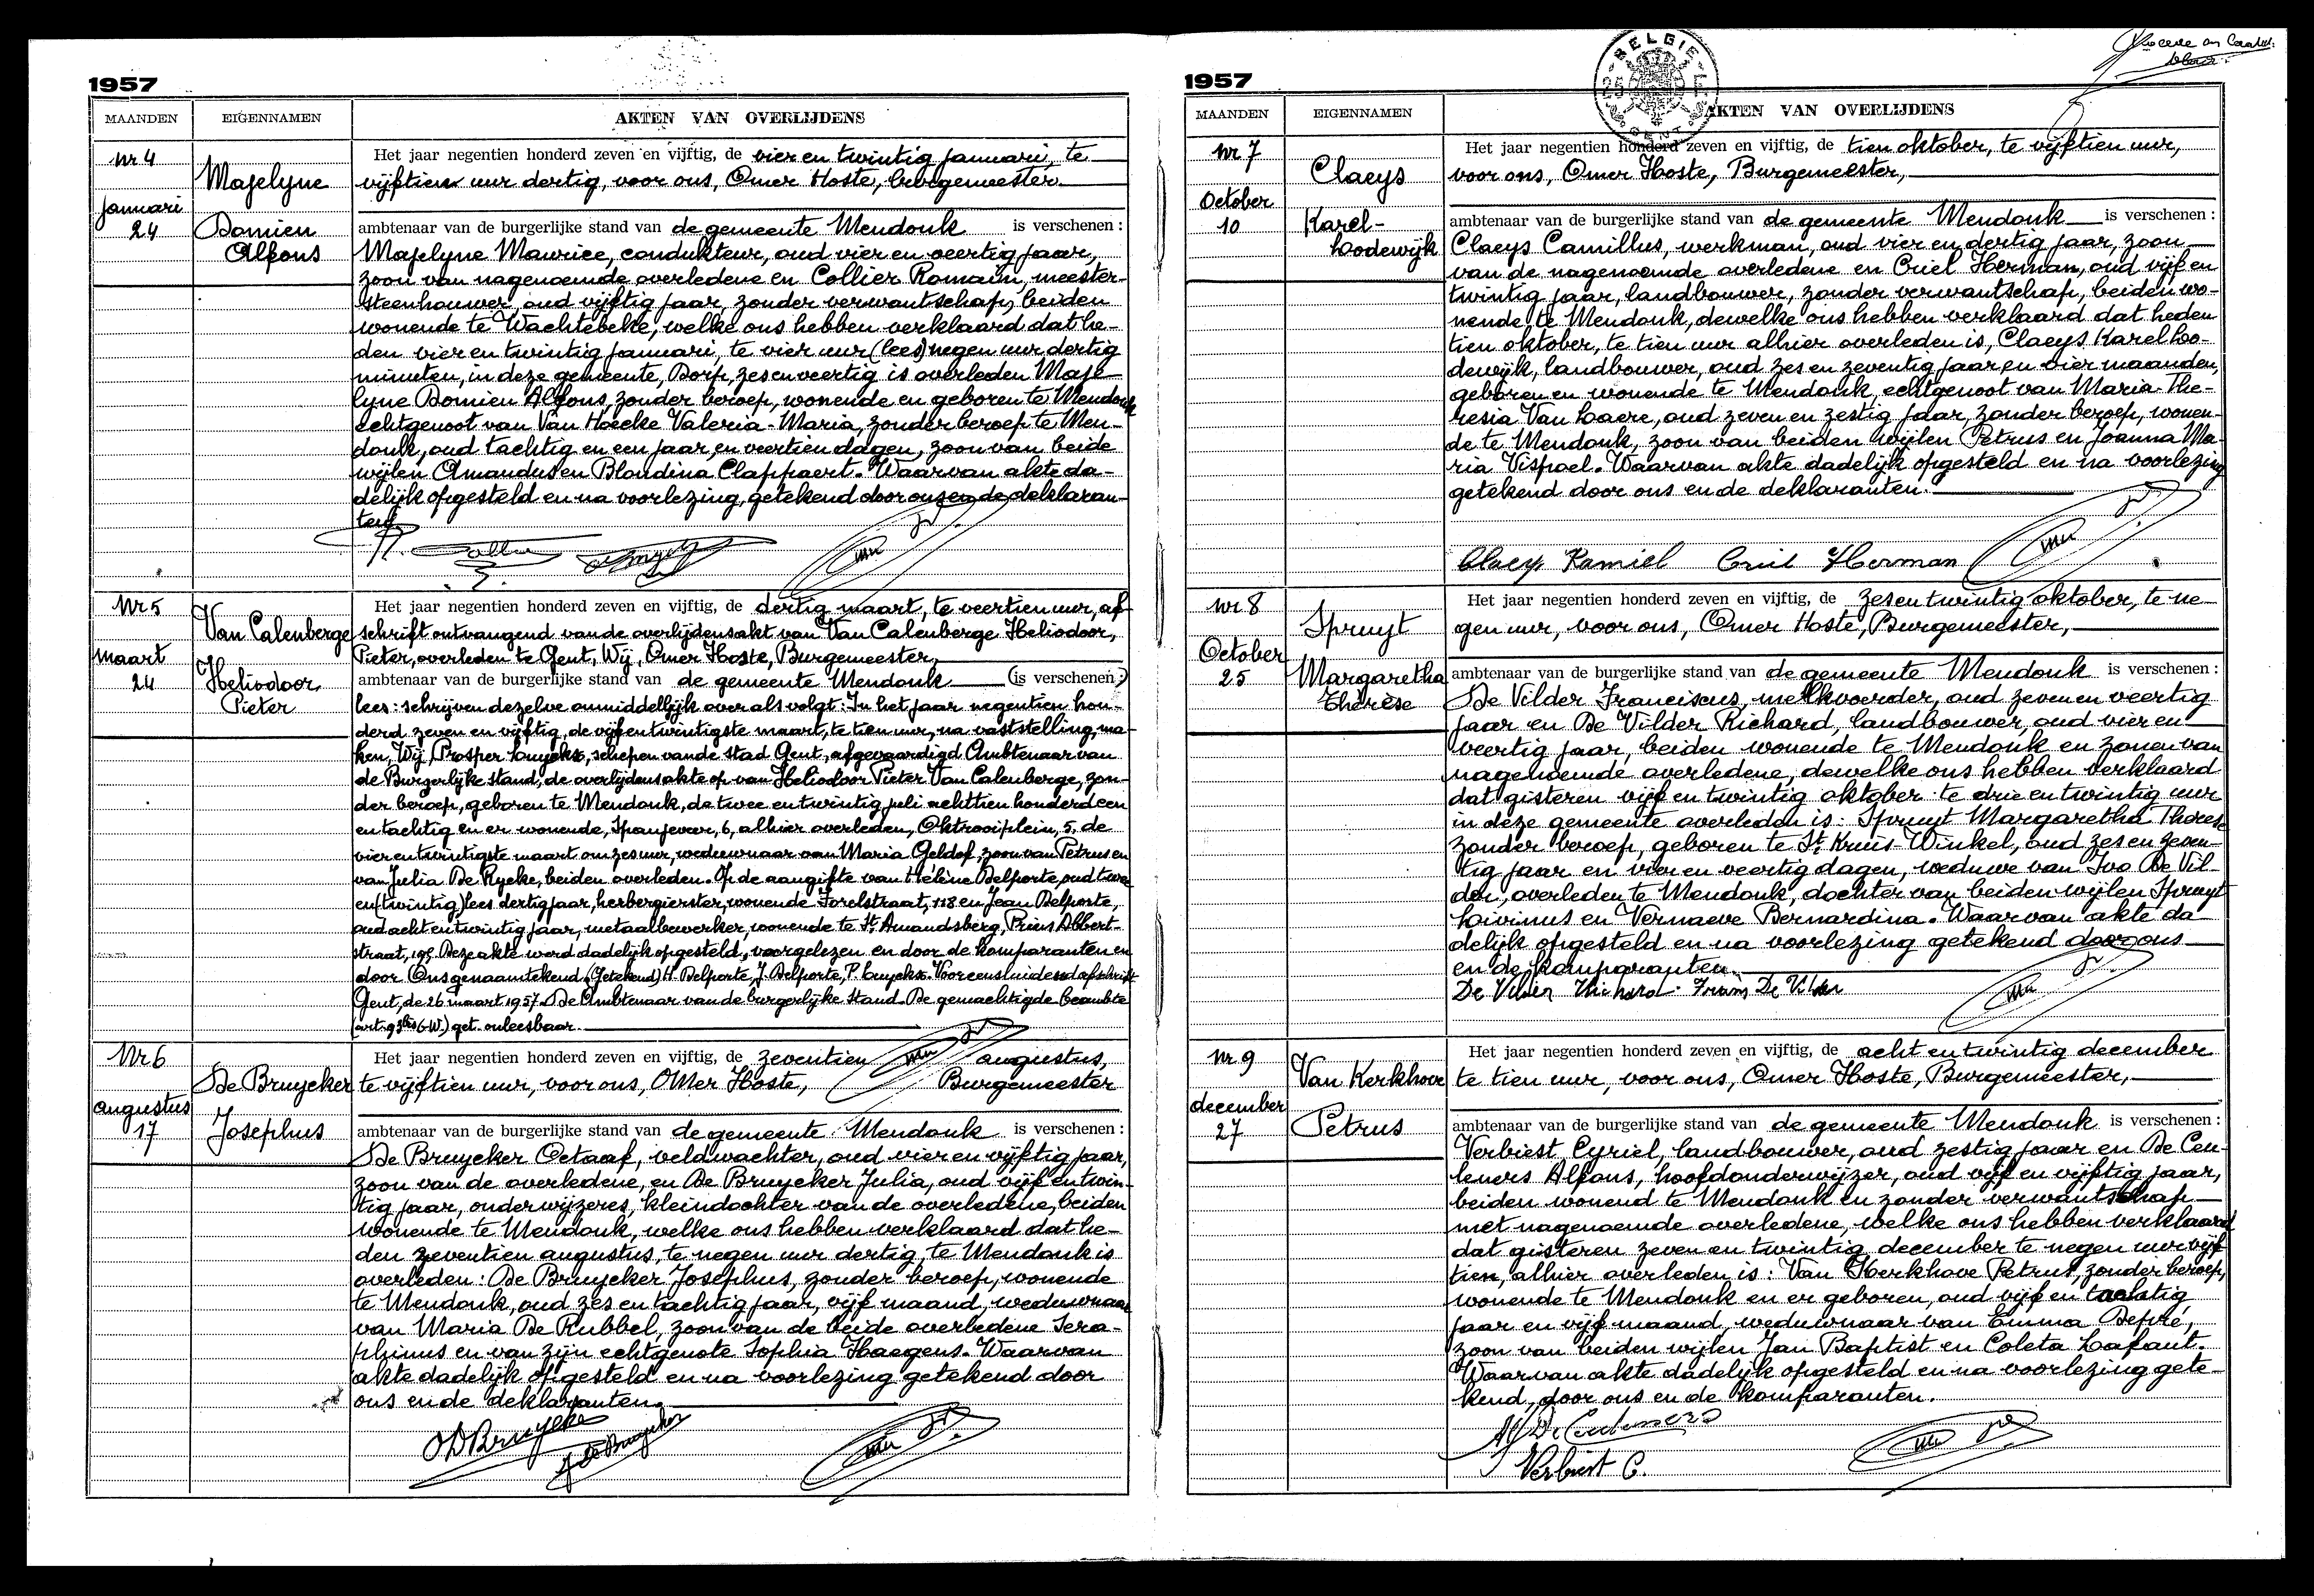 1957
MAANDEN EIGENNAMEN AKTEN VAN OVERLIJDENS
Nr 4
Januari
24
Majelyne
Domien
Alfons
Het jaar negentien honderd zeven en vijftig, de vier en twintig januari, te
vijftien uur dertig, voor ons, Omer Hoste, burgemeester
ambtenaar van de burgerlijke stand van de gemeente Mendonk is verschenen :
Majelyne Maurice, condukteur, oud vier en veertig jaar,
zoon van nagenoemde overledene en Collier Romain, meester-
steenhouwer, oud vijftig jaar, zonder verwantschap, beiden
wonende te Wachtebeke, welke ons hebben verklaard dat he-
den vier en twintig januari, te vier uur (lees) negen uur dertig
minuten, in deze gemeente, Dorp, zesenveertig is overleden Maje
lyne Domien Alfons, zonder beroep, wonende en geboren te Mendonk
echtgenoot van Van Hoecke Valeria-Maria, zonder beroep te Men-
donk, oud tachtig en een jaar en veertien dagen, zoon van beide
wijlen Amandus en Blondina Clappaert. Waarvan akte da-
delijk opgesteld en na voorlezing, getekend door ons en de deklaran-
ten.
Nr 5
maart
24
Van Calenberge
Heliodoor
Pieter
Het jaar negentien honderd zeven en vijftig, de dertig maart, te veertien uur, af
schrift ontvangend van de overlijdensakt van Van Calenberge Heliodoor,
Pieter, overleden te Gent, Wij, Omer Hoste, Burgemeester,
ambtenaar van de burgerlijke stand van de gemeente Mendonk (is verschenen :)
lees: schrijven dezelve onmiddellijk over als volgt: In het jaar negentien hon-
derd zeven en vijftig, de vijfentwintigste maart, te tien uur, na vaststelling, ma-
ken, Wij, Prosper Luyckx, schepen van de stad Gent, afgevaardigd Ambtenaar van
de Burgerlijke stand, de overlijdensakte op van Heliodoor Pieter Van Calenberge, zon-
der beroep, geboren te Mendonk, de twee en twintig juli achttien honderd een
en tachtig en er wonende, Spanjeveer, 6, alhier overleden, Oktrooiplein, 5, de
vier entwintigste maart om zes uur, weduwnaar van Maria Geldof, zoon van Petrus en
van Julia De Rycke, beiden overleden. Op de aangifte van Hélène Delporte, oud twee
en (twintig) lees dertig jaar, herbergierster, wonende Forelstraat, 118 en Jean Delporte,
oud acht en twintig jaar, metaalbewerker, wonende te St. Amandsberg, Prins Albert-
straat, 195. Deze akte werd dadelijk opgesteld, voorgelezen en door de komparanten en
door Ons genaamtekend. (Getekend) H. Delporte, J. Delporte, P. Luyckx. Voor eensluidend afschrift
Gent, de 26 maart 1957. De Ambtenaar van de burgerlijke stand. De gemachtigde beambte
(art. 93bis G.W.) get. onleesbaar.
Nr 6
augustus
17
De Bruycker
Josephus
Het jaar negentien honderd zeven en vijftig, de zeventien augustus,
te vijftien uur, voor ons, OMer Hoste, Burgemeester
ambtenaar van de burgerlijke stand van de gemeente Mendonk is verschenen :
De Bruycker Octaaf, veldwachter, oud vier en vijftig jaar,
zoon van de overledene, en De Bruycker Julia, oud vijf en twin-
tig jaar, onderwijzeres, kleindochter van de overledene, beiden
wonende te Mendonk, welke ons hebben verklaard dat he-
den zeventien augustus, te negen uur dertig, te Mendonk is
overleden: De Bruycker Josephus, zonder beroep, wonende
te Mendonk, oud zes en tachtig jaar, vijf maand, weduwnaar
van Maria De Rubbel, zoon van de beide overledene Sera-
phinus en van zijn echtgenote Sophia Haegens. Waarvan
akte dadelijk opgesteld en na voorlezing getekend door
ons en de deklaranten.
ODBruycker
J. De Bruycker
1957
BELGIE
25 F
GENT
MAANDEN EIGENNAMEN AKTEN VAN OVERLIJDENS
Nr 7
October
10
Claeys
Karel-
Lodewijk
Het jaar negentien honderd zeven en vijftig, de tien oktober, te vijftien uur,
voor ons, Omer Hoste, Burgemeester,
ambtenaar van de burgerlijke stand van de gemeente Mendonk is verschenen :
Claeys Camillus, werkman, oud vier en dertig jaar, zoon
van de nagenoemde overledene en Criel Herman, oud vijf en
twintig jaar, landbouwer, zonder verwantschap, beiden wo-
nende te Mendonk, dewelke ons hebben verklaard dat heden
tien oktober, te tien uur alhier overleden is, Claeys Karel Loo-
dewijk, landbouwer, oud zes en zeventig jaar en vier maanden,
geboren en wonende te Mendonk, echtgenoot van Maria-The-
resia Van Laere, oud zeven en zestig jaar, zonder beroep, wonen-
de te Mendonk, zoon van beiden wijlen Petrus en Joanna Ma-
ria Vispoel. Waarvan akte dadelijk opgesteld en na voorlezing
getekend door ons en de deklaranten.
Claeys Kamiel Criel Herman
Nr 8
October
25
Spruyt
Margaretha
Therèse
Het jaar negentien honderd zeven en vijftig, de zesentwintig oktober, te ne-
gen uur, voor ons, Omer Hoste, Burgemeester,
ambtenaar van de burgerlijke stand van de gemeente Mendonk is verschenen :
De Vilder Franciscus, melkvoerder, oud zeven en veertig
jaar en De Vilder Richard, landbouwer, oud vier en
veertig jaar, beiden wonende te Mendonk en zonen van
nagenoemde overledene, dewelke ons hebben verklaard
dat gisteren vijf en twintig oktober te drie en twintig uur
in deze gemeente overleden is: Spruyt Margaretha Therese
zonder beroep, geboren te St. Kruis-Winkel, oud zes en zeven-
tig jaar en vier en veertig dagen, weduwe van Ivo De Vil-
der, overleden te Mendonk, dochter van beiden wijlen Spruyt
Livinus en Vernaeve Bernardina. Waarvan akte da
delijk opgesteld en na voorlezing getekend door ons
en de komparanten.
De Vilder Richard Frans De Vilder
Nr. 9
december
27
Van Kerkhove
Petrus
Het jaar negentien honderd zeven en vijftig, de acht en twintig december
te tien uur, voor ons, Omer Hoste, Burgemeester,
ambtenaar van de burgerlijke stand van de gemeente Mendonk is verschenen :
Verbiest Cyriel, landbouwer, oud zestig jaar en De Ceu-
leners Alfons, hoofdonderwijzer, oud vijf en vijftig jaar,
beiden wonend te Mendonk en zonder verwantschap
met nagenoemde overledene, welke ons hebben verklaard
dat gisteren zeven en twintig december te negen uur vijf
tien, alhier overleden is: Van Kerkhove Petrus, zonder beroep,
wonende te Mendonk en er geboren, oud vijf en tachtig
jaar en vijf maand, weduwnaar van Emma Depré,
zoon van beiden wijlen Jan Baptist en Coleta Lafaut.
Waarvan akte dadelijk opgesteld en na voorlezing gete-
kend, door ons en de komparanten.
Verbiest C.